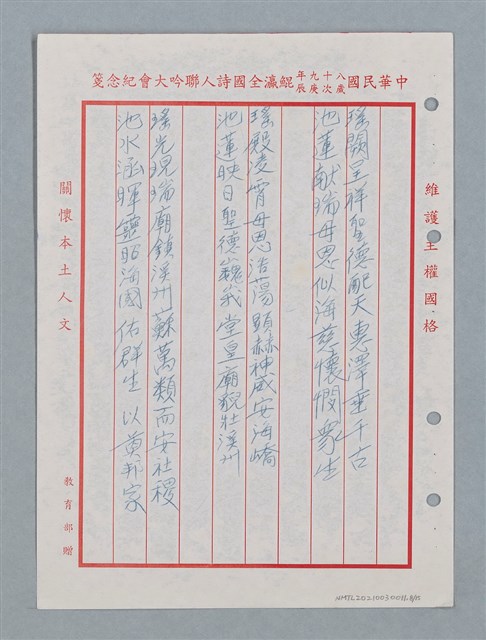 中華民國八十九年歲次庚辰鯤瀛全國詩人聯吟大會紀念箋
維護主權國格
瑤闕呈祥聖德配天惠澤垂千古
池蓮献瑞母恩似海慈懷憫衆生
瑤殿凌霄母恩浩蕩顯赫神威安海嶠
池蓮映日聖德巍峩堂皇廟貌壯溪州
瑤光現瑞廟鎮溪州蘇萬類而安社稷
池水涵暉靈昭海國佑群生以奠邦家
關懷本土人文
教育部贈